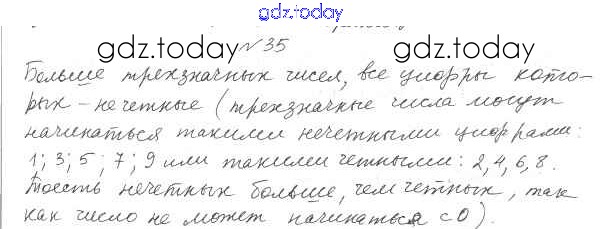 gdz.today
gdz.today № 35 gdz.today
Больше трехзначных чисел, все цифры кото-
рых – нечетные (трехзначные числа могут
начинаться такими нечетными цифрами:
1; 3; 5; 7; 9 или такими четными: 2, 4, 6, 8.
Тоесть нечетных больше, чем четных, так
как число не может начинаться с 0).